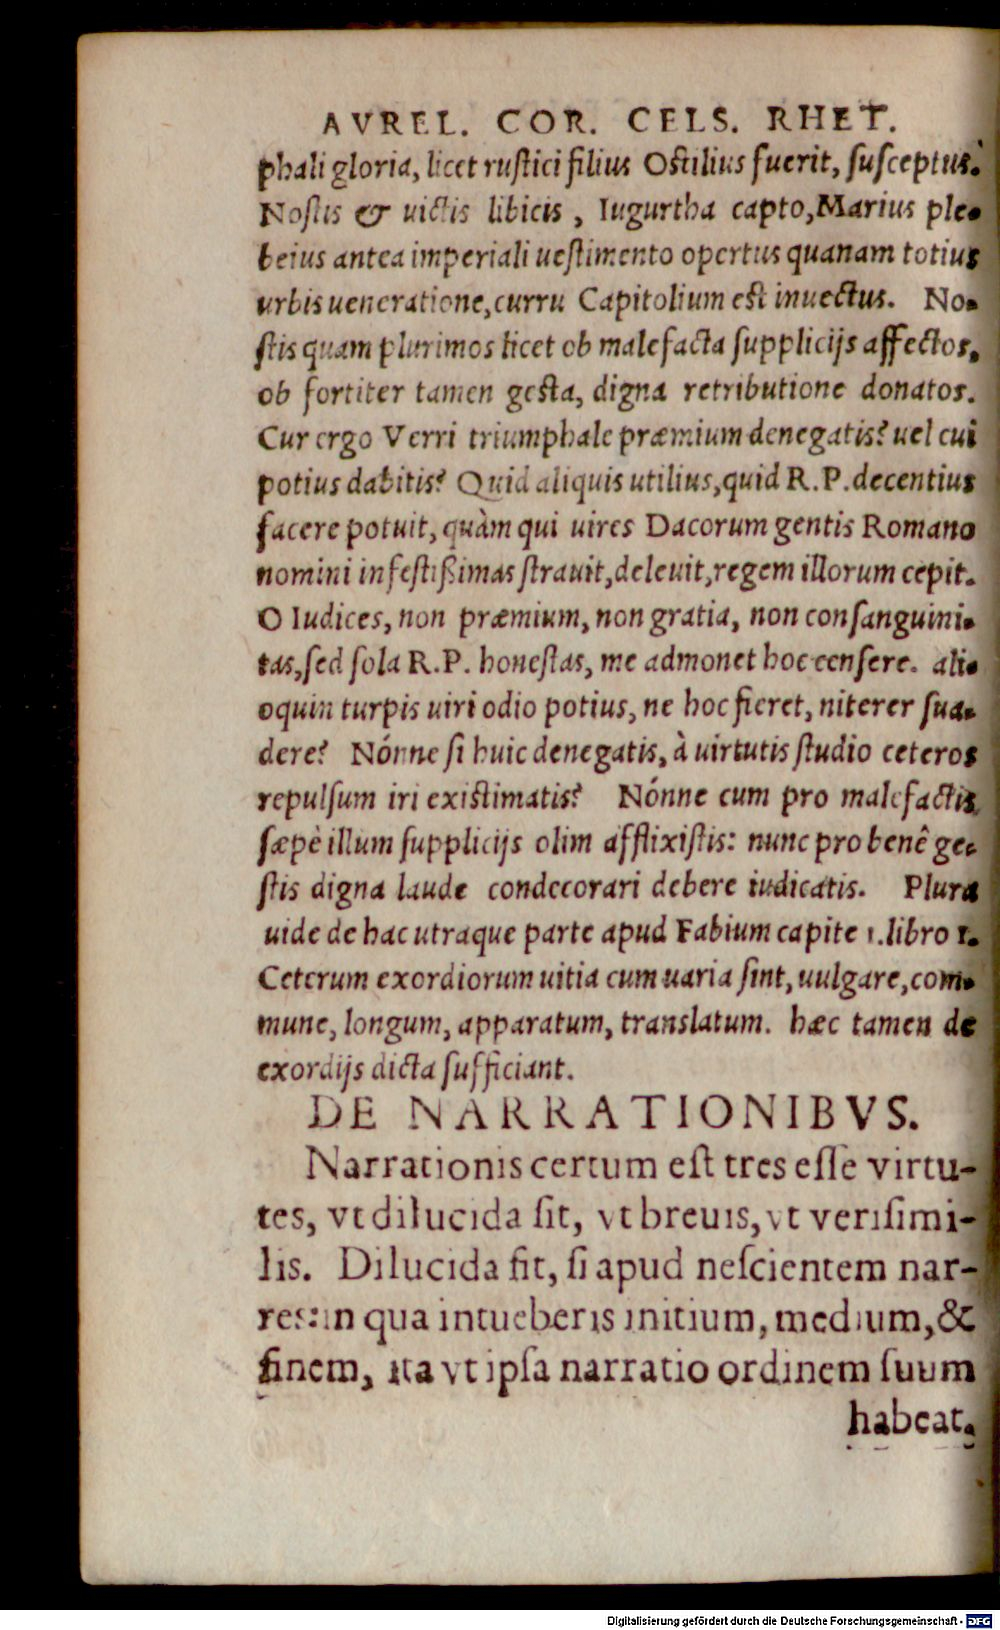 AVREL. COR. CELS. RHET.
phali gloria, licet rustici filius Ostilius fuerit, susceptus.
Nostis & uictis libicis, Iugurtha capto, Marius ple-
beius antea imperiali uestimento opertus quanam totius
urbis ueneratione, curru Capitolium est inuectus. No-
stis quam plurimos licet ob malefacta supplicijs affectos,
ob fortiter tamen gesta, digna retributione donatos.
Cur ergo Verri triumphale præmium denegatis? uel cui
potius dabitis? Quid aliquis utilius, quid R.P. decentius
facere potuit, quàm qui uires Dacorum gentis Romano
nomini infestißimas strauit, deleuit, regem illorum cepit.
O Iudices, non præmium, non gratia, non consanguini-
tas, sed sola R.P. honestas, me admonet hoc censere. ali-
oquin turpis uiri odio potius, ne hoc fieret, niterer sua-
dere? Nónne si huic denegatis, à uirtutis studio ceteros
repulsum iri existimatis? Nónne cum pro malefactis
sæpè illum supplicijs olim afflixistis: nunc pro benê ge-
stis digna laude condecorari debere iudicatis. Plura
uide de hac utraque parte apud Fabium capite 1. libro 1.
Ceterum exordiorum uitia cum uaria sint, uulgare, com-
mune, longum, apparatum, translatum. hæc tamen de
exordijs dicta sufficiant.
DE NARRATIONIBVS.
Narrationis certum est tres esse virtu-
tes, vt dilucida sit, vt breuis, vt verisimi-
lis. Dilucida fit, si apud nescientem nar-
res: in qua intueberis initium, medium, &
finem, ita vt ipsa narratio ordinem suum
habeat.
Digitalisierung gefördert durch die Deutsche Forschungsgemeinschaft - DFG